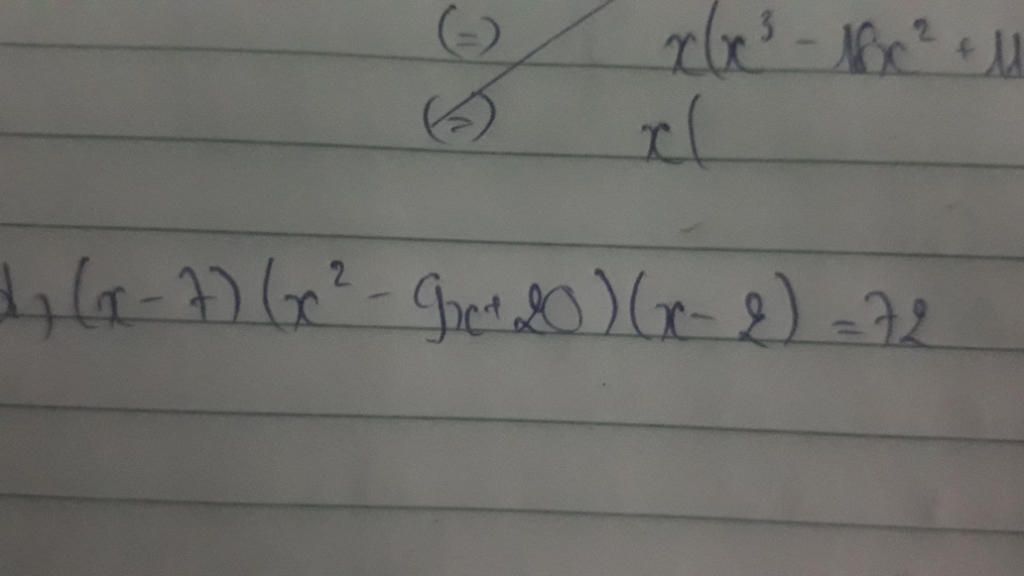 (=) x(x³ - 18x² + 11
(=) x(
d, (x - 7)(x² - 9x + 20)(x - 2) = 72